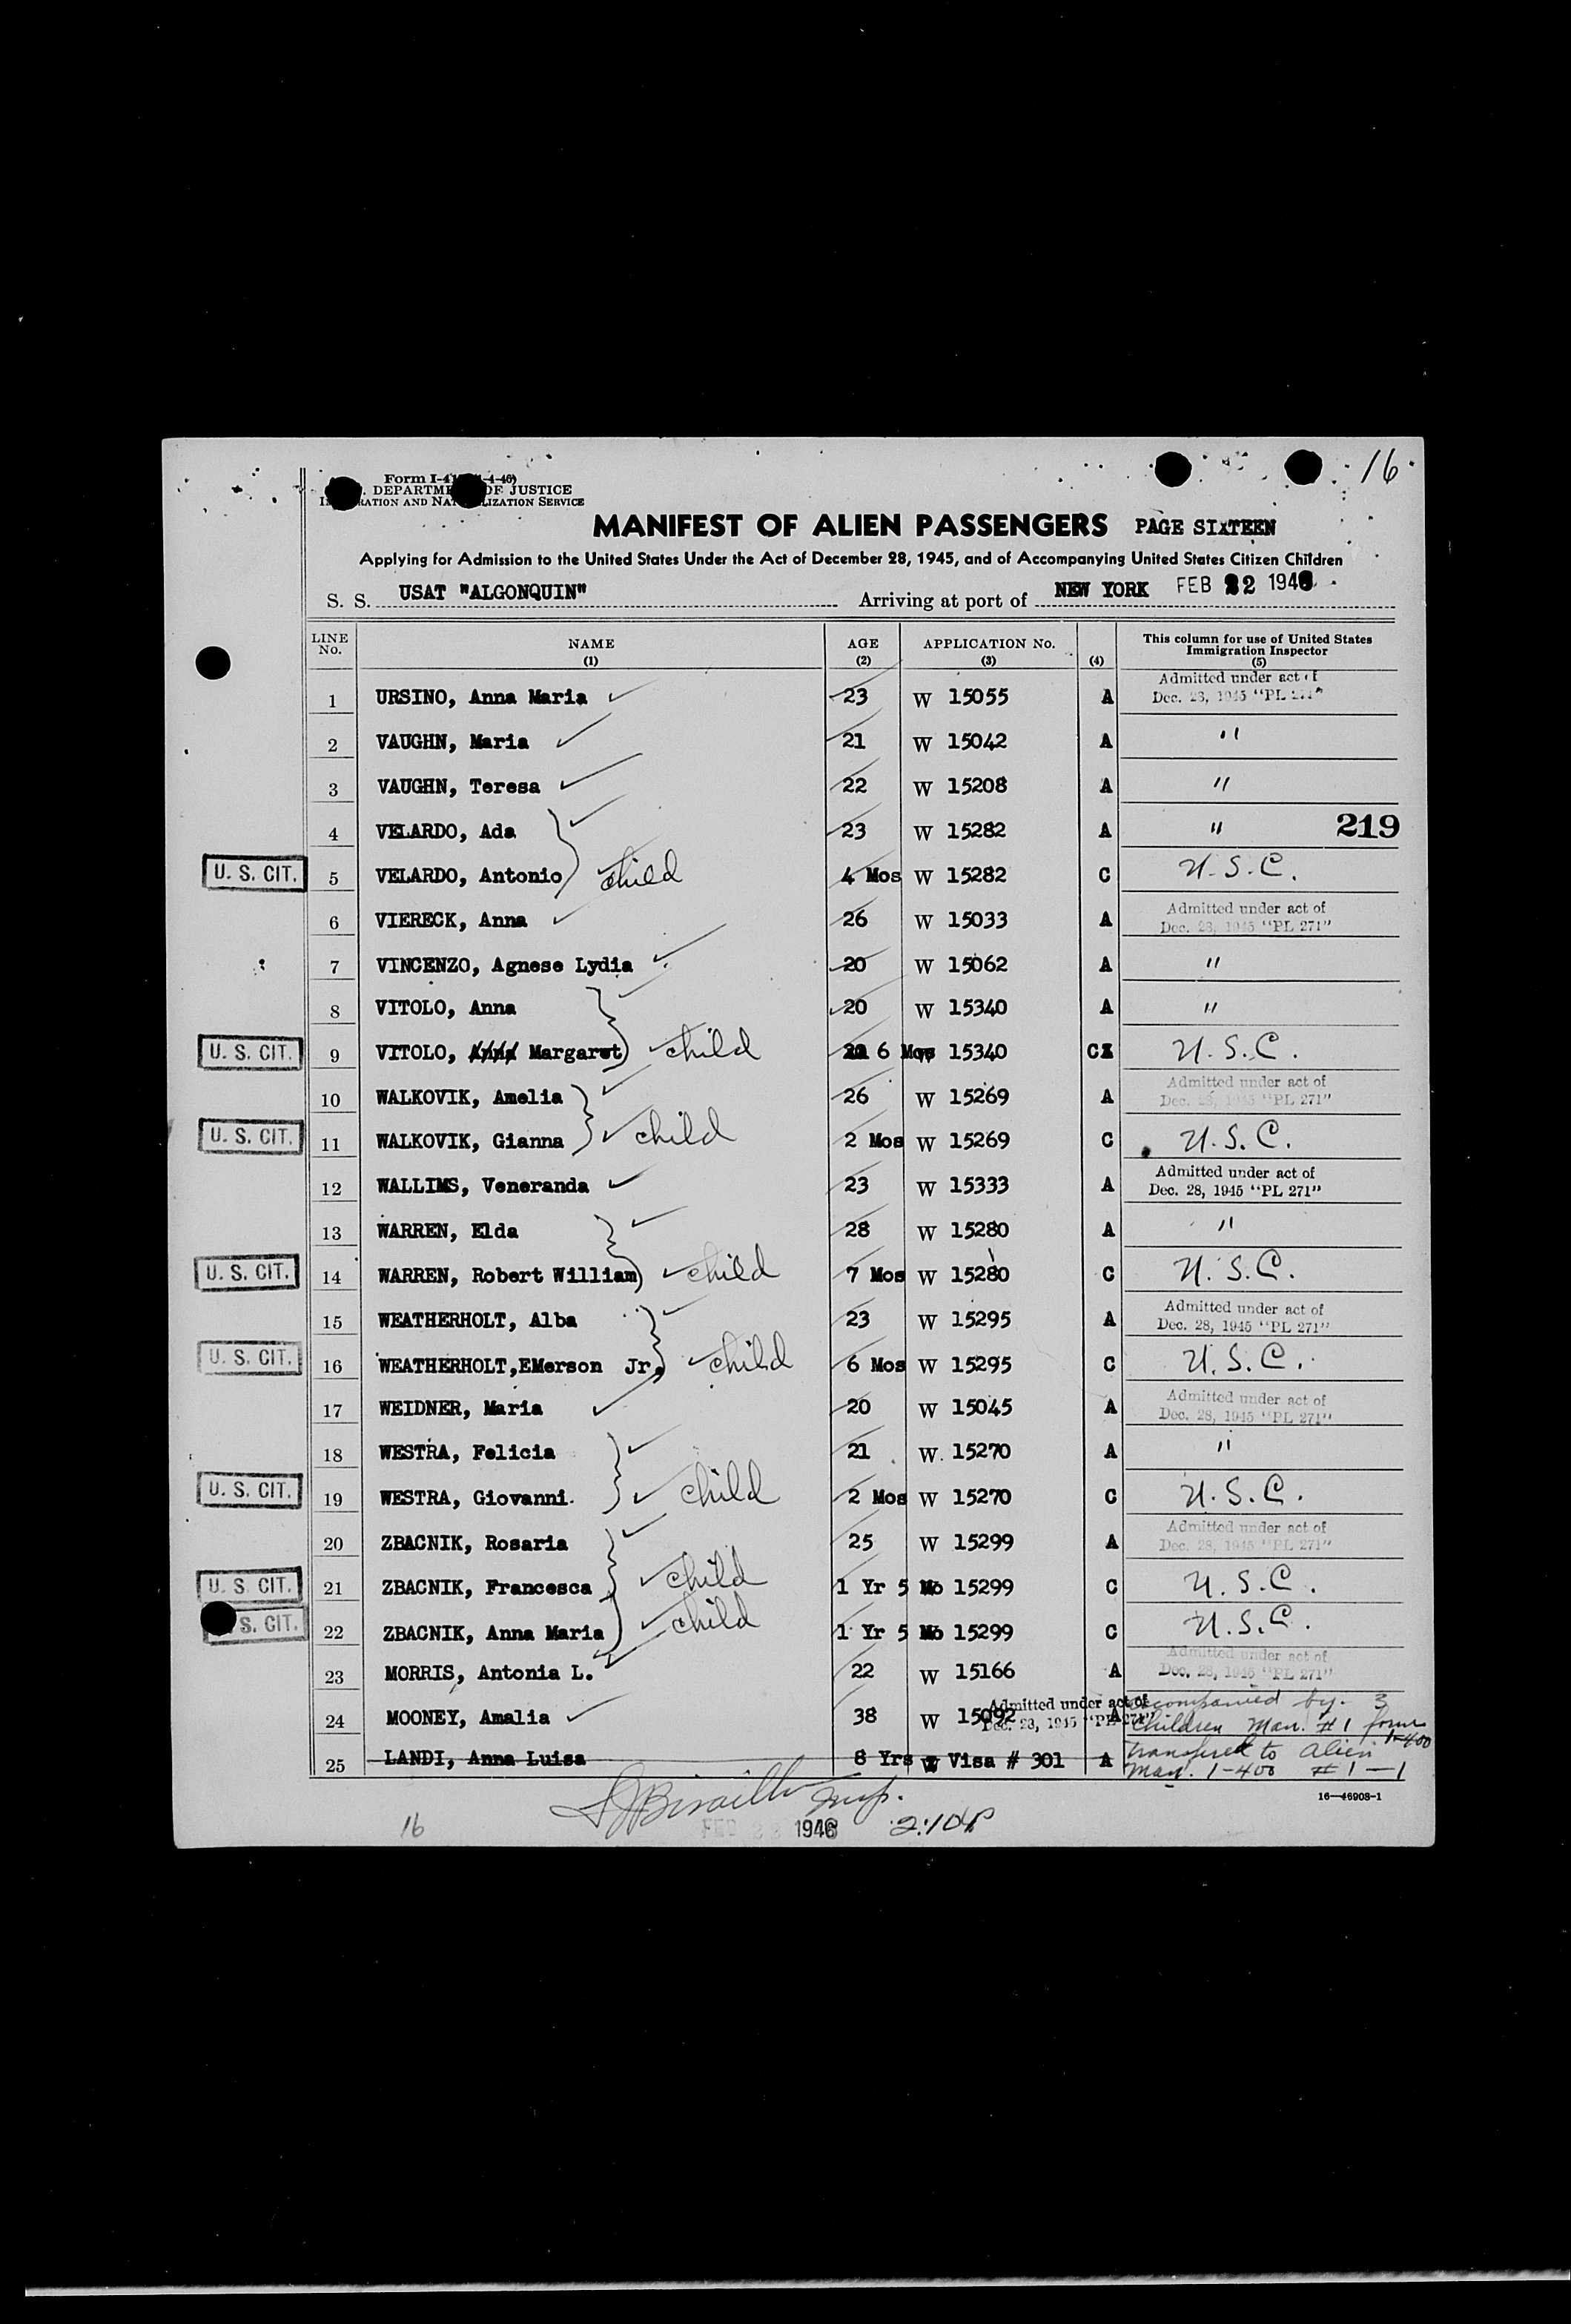 16
Form I-4 -4-46)
DEPARTME OF JUSTICE
I RATION AND NAT LIZATION SERVICE
MANIFEST OF ALIEN PASSENGERS PAGE SIXTEEN
Applying for Admission to the United States Under the Act of December 28, 1945, and of Accompanying United States Citizen Children
S. S. USAT "ALGONQUIN" Arriving at port of NEW YORK FEB 22 1946
LINE No. NAME (1) AGE (2) APPLICATION No. (3) (4) This column for use of United States Immigration Inspector (5)
1 URSINO, Anna Maria 23 W 15055 A Admitted under act of Dec. 28, 1945 "PL 271"
2 VAUGHN, Maria 21 W 15042 A "
3 VAUGHN, Teresa 22 W 15208 A "
4 VELARDO, Ada 23 W 15282 A " 219
U. S. CIT. 5 VELARDO, Antonio child 4 Mos W 15282 C U.S.C.
6 VIERECK, Anna 26 W 15033 A Admitted under act of Dec. 28, 1945 "PL 271"
7 VINCENZO, Agnese Lydia 20 W 15062 A "
8 VITOLO, Anna 20 W 15340 A "
U. S. CIT. 9 VITOLO, Margaret child 6 Mos W 15340 C U.S.C.
10 WALKOVIK, Amelia 26 W 15269 A Admitted under act of Dec. 28, 1945 "PL 271"
U. S. CIT. 11 WALKOVIK, Gianna child 2 Mos W 15269 C U.S.C.
12 WALLIMS, Veneranda 23 W 15333 A Admitted under act of Dec. 28, 1945 "PL 271"
13 WARREN, Elda 28 W 15280 A "
U. S. CIT. 14 WARREN, Robert William child 7 Mos W 15280 C U.S.C.
15 WEATHERHOLT, Alba 23 W 15295 A Admitted under act of Dec. 28, 1945 "PL 271"
U. S. CIT. 16 WEATHERHOLT,EMerson Jr. child 6 Mos W 15295 C U.S.C.
17 WEIDNER, Maria 20 W 15045 A Admitted under act of Dec. 28, 1945 "PL 271"
18 WESTRA, Felicia 21 W 15270 A "
U. S. CIT. 19 WESTRA, Giovanni child 2 Mos W 15270 C U.S.C.
20 ZBACNIK, Rosaria 25 W 15299 A Admitted under act of Dec. 28, 1945 "PL 271"
U. S. CIT. 21 ZBACNIK, Francesca child 1 Yr 5 Mo 15299 C U.S.C.
S. CIT. 22 ZBACNIK, Anna Maria child 1 Yr 5 Mo 15299 C U.S.C.
23 MORRIS, Antonia L. 22 W 15166 A Admitted under act of Dec. 28, 1945 "PL 271"
24 MOONEY, Amalia 38 W 15092 A Admitted under act of Dec. 28, 1945 "PL 271" accompanied by 3 Children Man. #1 form I-400
25 LANDI, Anna Luisa 8 Yrs W Visa # 301 A transferred to alien man. 1-400 #1-1
16—46908-1
16 FEB 22 1946 2:10P